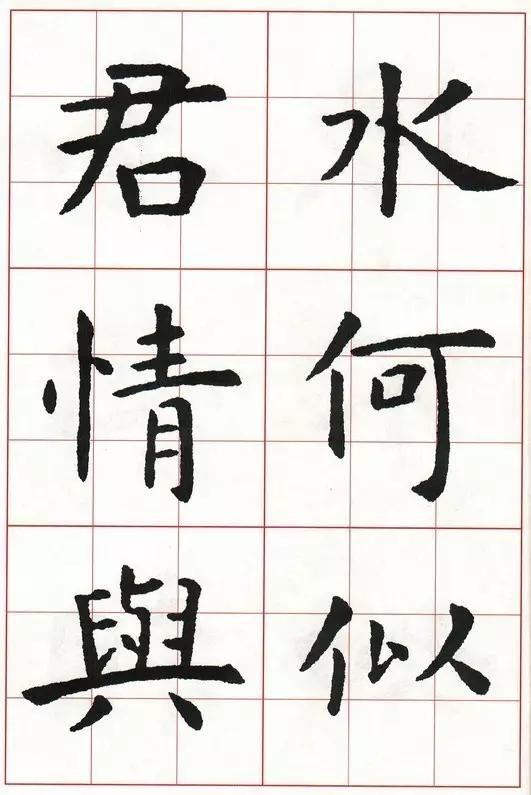 水何似
君情與